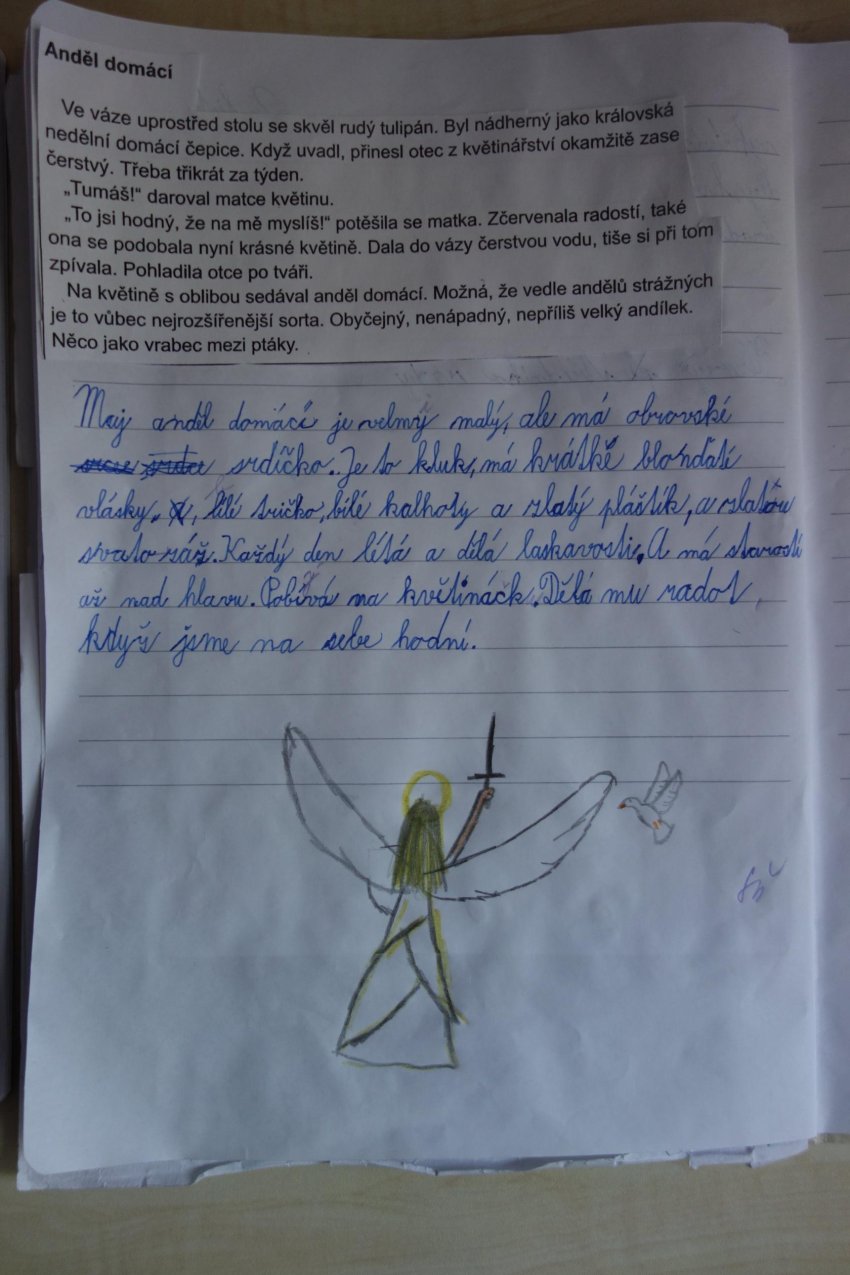 Anděl domácí
Ve váze uprostřed stolu se skvěl rudý tulipán. Byl nádherný jako královská
nedělní domácí čepice. Když uvadl, přinesl otec z květinářství okamžitě zase
čerstvý. Třeba třikrát za týden.
„Tumáš!“ daroval matce květinu.
„To jsi hodný, že na mě myslíš!“ potěšila se matka. Zčervenala radostí, také
ona se podobala nyní krásné květině. Dala do vázy čerstvou vodu, tiše si při tom
zpívala. Pohladila otce po tváři.
Na květině s oblibou sedával anděl domácí. Možná, že vedle andělů strážných
je to vůbec nejrozšířenější sorta. Obyčejný, nenápadný, nepříliš velký andílek.
Něco jako vrabec mezi ptáky.
Muj anděl domácí je velmy malý, ale má obrovské
srdíčko. Je to kluk, má krátké blonďaté
vlásky, bílé tričko, bílé kalhoty a zlatý pláštík, a zlatou
svatozáž. Každý den lítá a dělá laskavosti. A má starosti
až nad hlavu. Pobívá na květináčk. Dělá mu radot,
když jsme na sebe hodní.